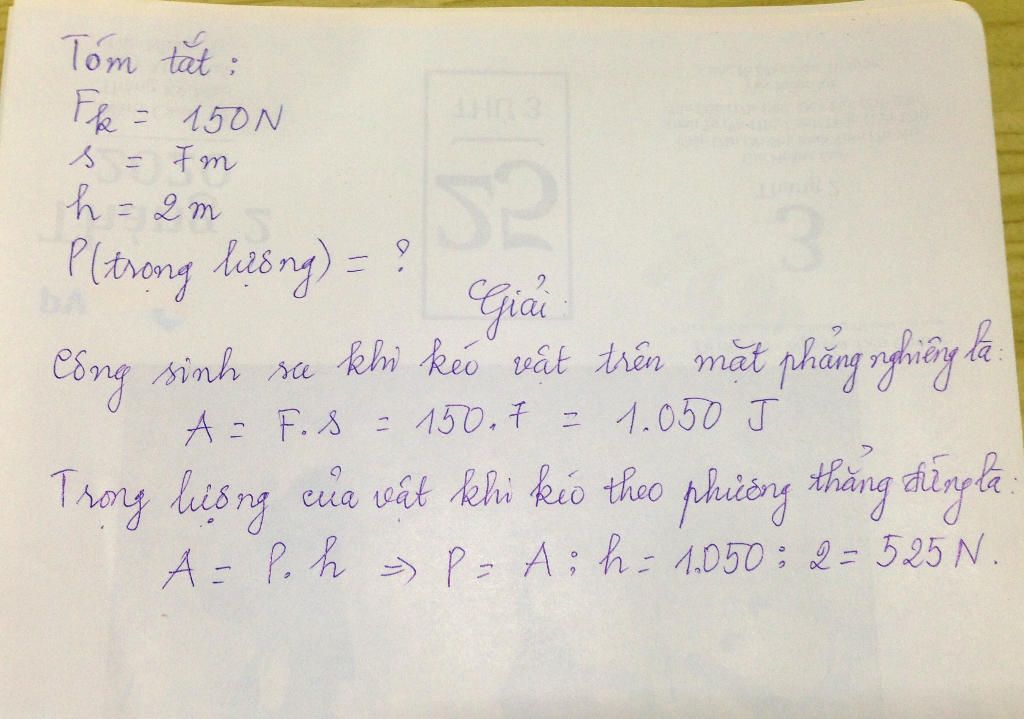 Tóm tắt :
Fk = 150N
s = 7m
h = 2m
P(trọng lượng) = ?
Giải
Công sinh ra khi kéo vật trên mặt phẳng nghiêng là:
A = F.s = 150.7 = 1.050 J
Trọng lượng của vật khi kéo theo phương thẳng đứng là:
A = P.h => P = A : h = 1.050 : 2 = 525N.
THỨ 3
25
Tháng 2
3
2020
Tháng 2